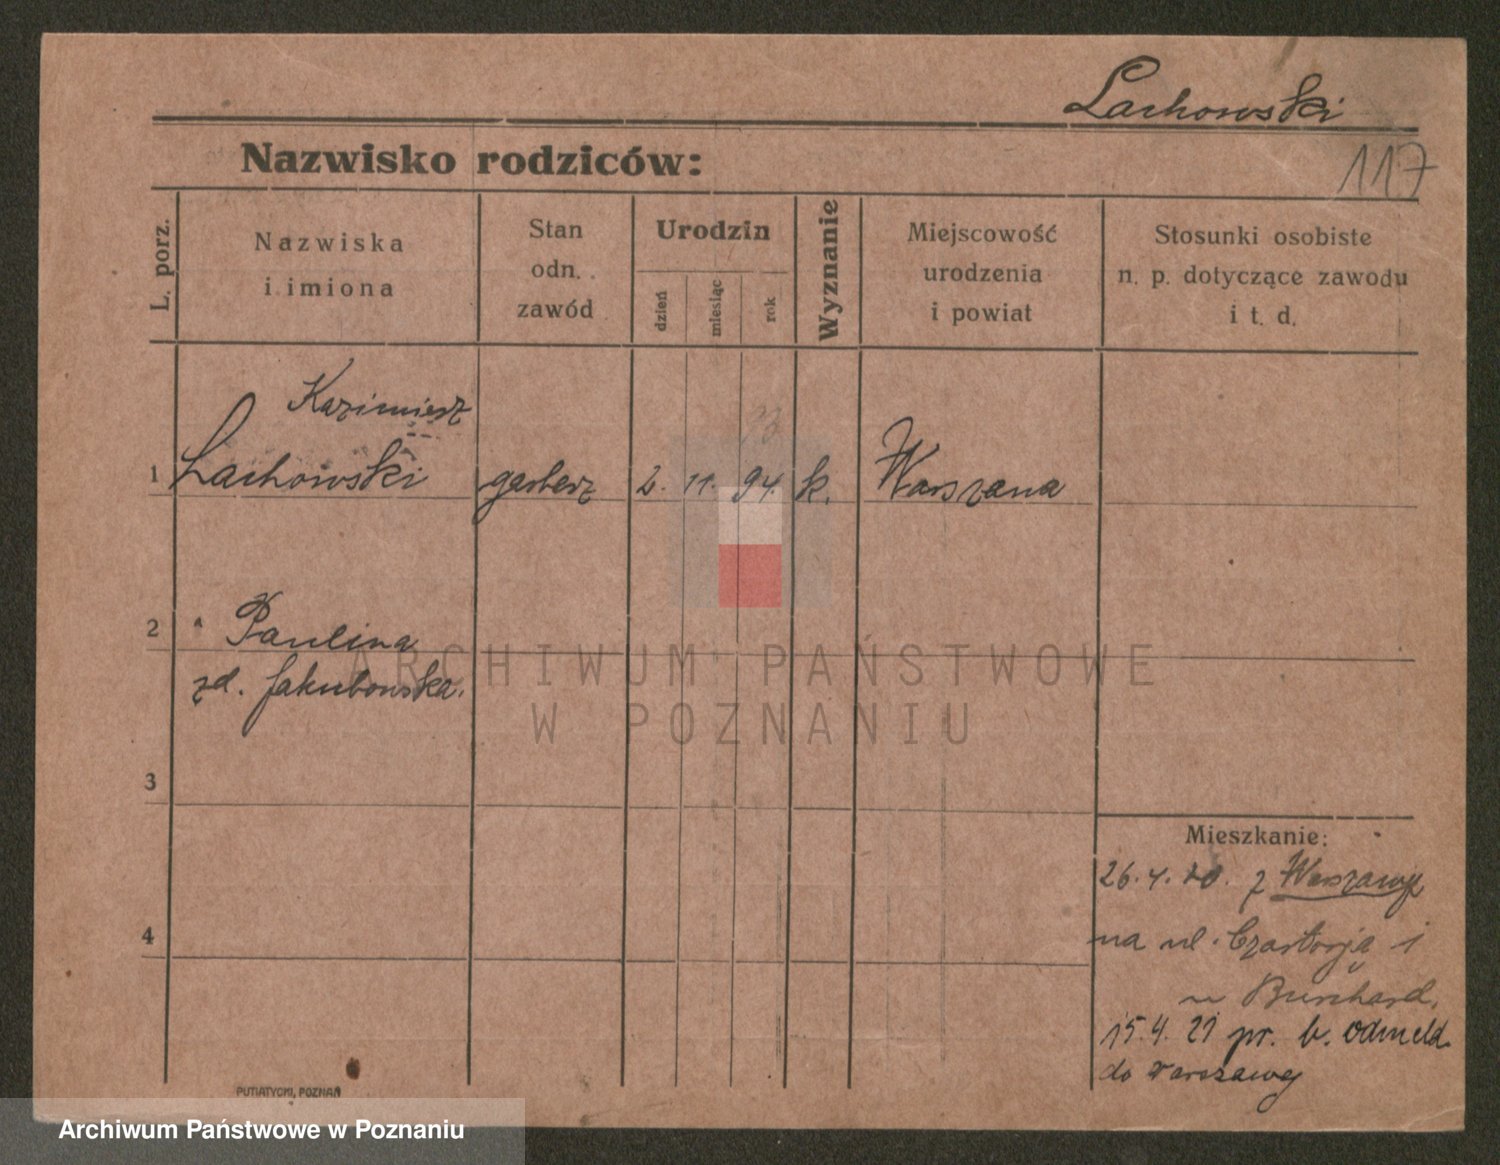 Lachowski
117
Nazwisko rodziców:
L. porz.
Nazwiska
i imiona
Stan
odn.
zawód
Urodzin
dzień
miesiąc
rok
Wyznanie
Miejscowość
urodzenia
i powiat
Stosunki osobiste
n. p. dotyczące zawodu
i t. d.
Kazimierz
1 Lachowski garberz 2. 11. 94. k. Warszawa
2 Paulina
zd. Jakubowska.
3
4
Mieszkanie:
26.4.20. z Warszawy
na ul. Czartorją 1
u Burchard.
15.4.21 pr. b. odmeld.
do Warszawy
PUTIATYCKI, POZNAŃ
ARCHIWUM PAŃSTWOWE
W POZNANIU
Archiwum Państwowe w Poznaniu